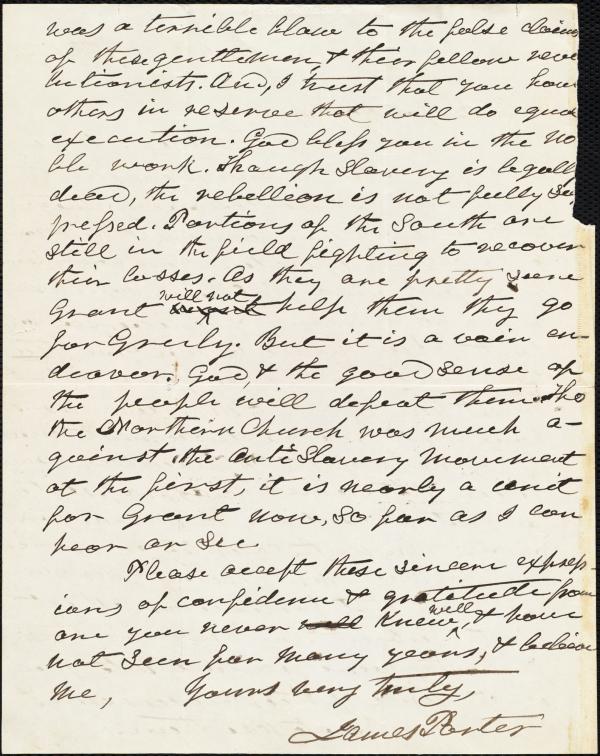 was a terrible blow to the false claims
of these gentlemen, & their fellow revo
lutionists. And, I trust that you have
others in reserve that will do equal
execution. God bless you in the no
ble work. Though Slavery is legally
dead, the rebellion is not fully su
pressed. Portions of the South are
still in the field fighting to recover
their losses. As they are pretty sure
Grant will not help them they go
for Greely. But it is a vain en-
deavor. God, & the good sense of
the people will defeat them. Tho
the Northern Church was much a-
gainst the Anti Slavery movement
at the first, it is nearly a unit
for Grant now, so far as I can
hear or see
Please accept these sincere express-
ions of confidence & gratitude from
one you never knew well, & have
not seen for many years, & believe
me, Yours very truly,
James Porter